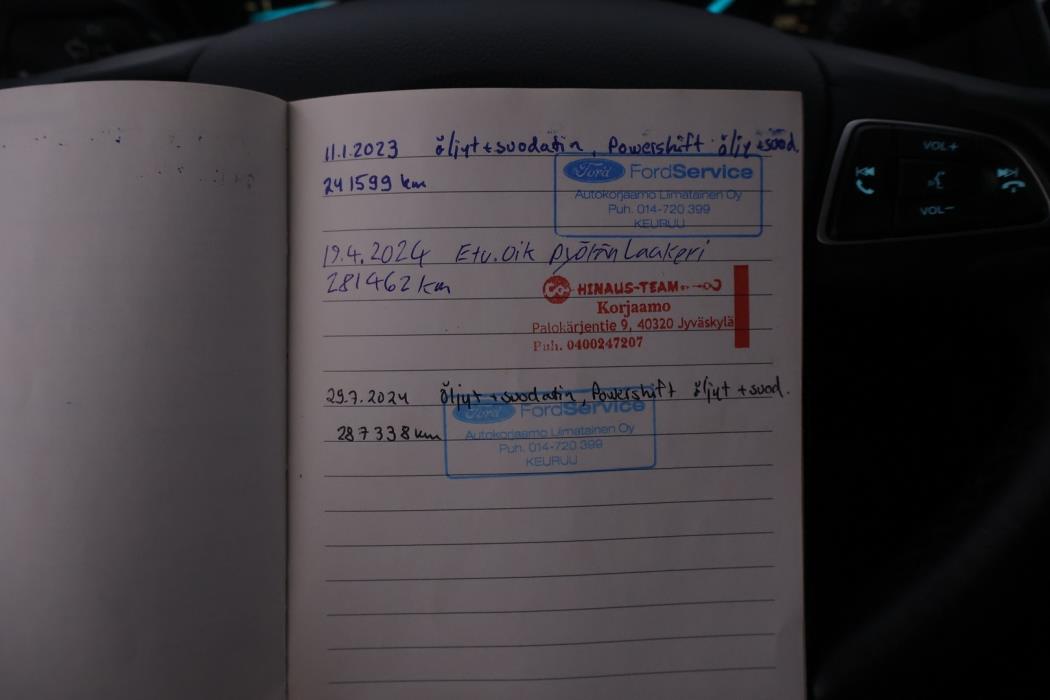 11.1.2023 öljyt + suodatin, Powershift öljy + suod.
241599 km
Ford FordService
Autokorjaamo Liimatainen Oy
Puh. 014-720 399
KEURUU
19.4.2024 Etu.Oik pyörän Laakeri
281462 km
HINAUS-TEAM
Korjaamo
Palokärjentie 9, 40320 Jyväskylä
Puh. 0400247207
29.7.2024 öljyt + suodatin, Powershift öljyt + suod.
287338 km
Ford FordService
Autokorjaamo Liimatainen Oy
Puh. 014-720 399
KEURUU
VOL+
VOL-